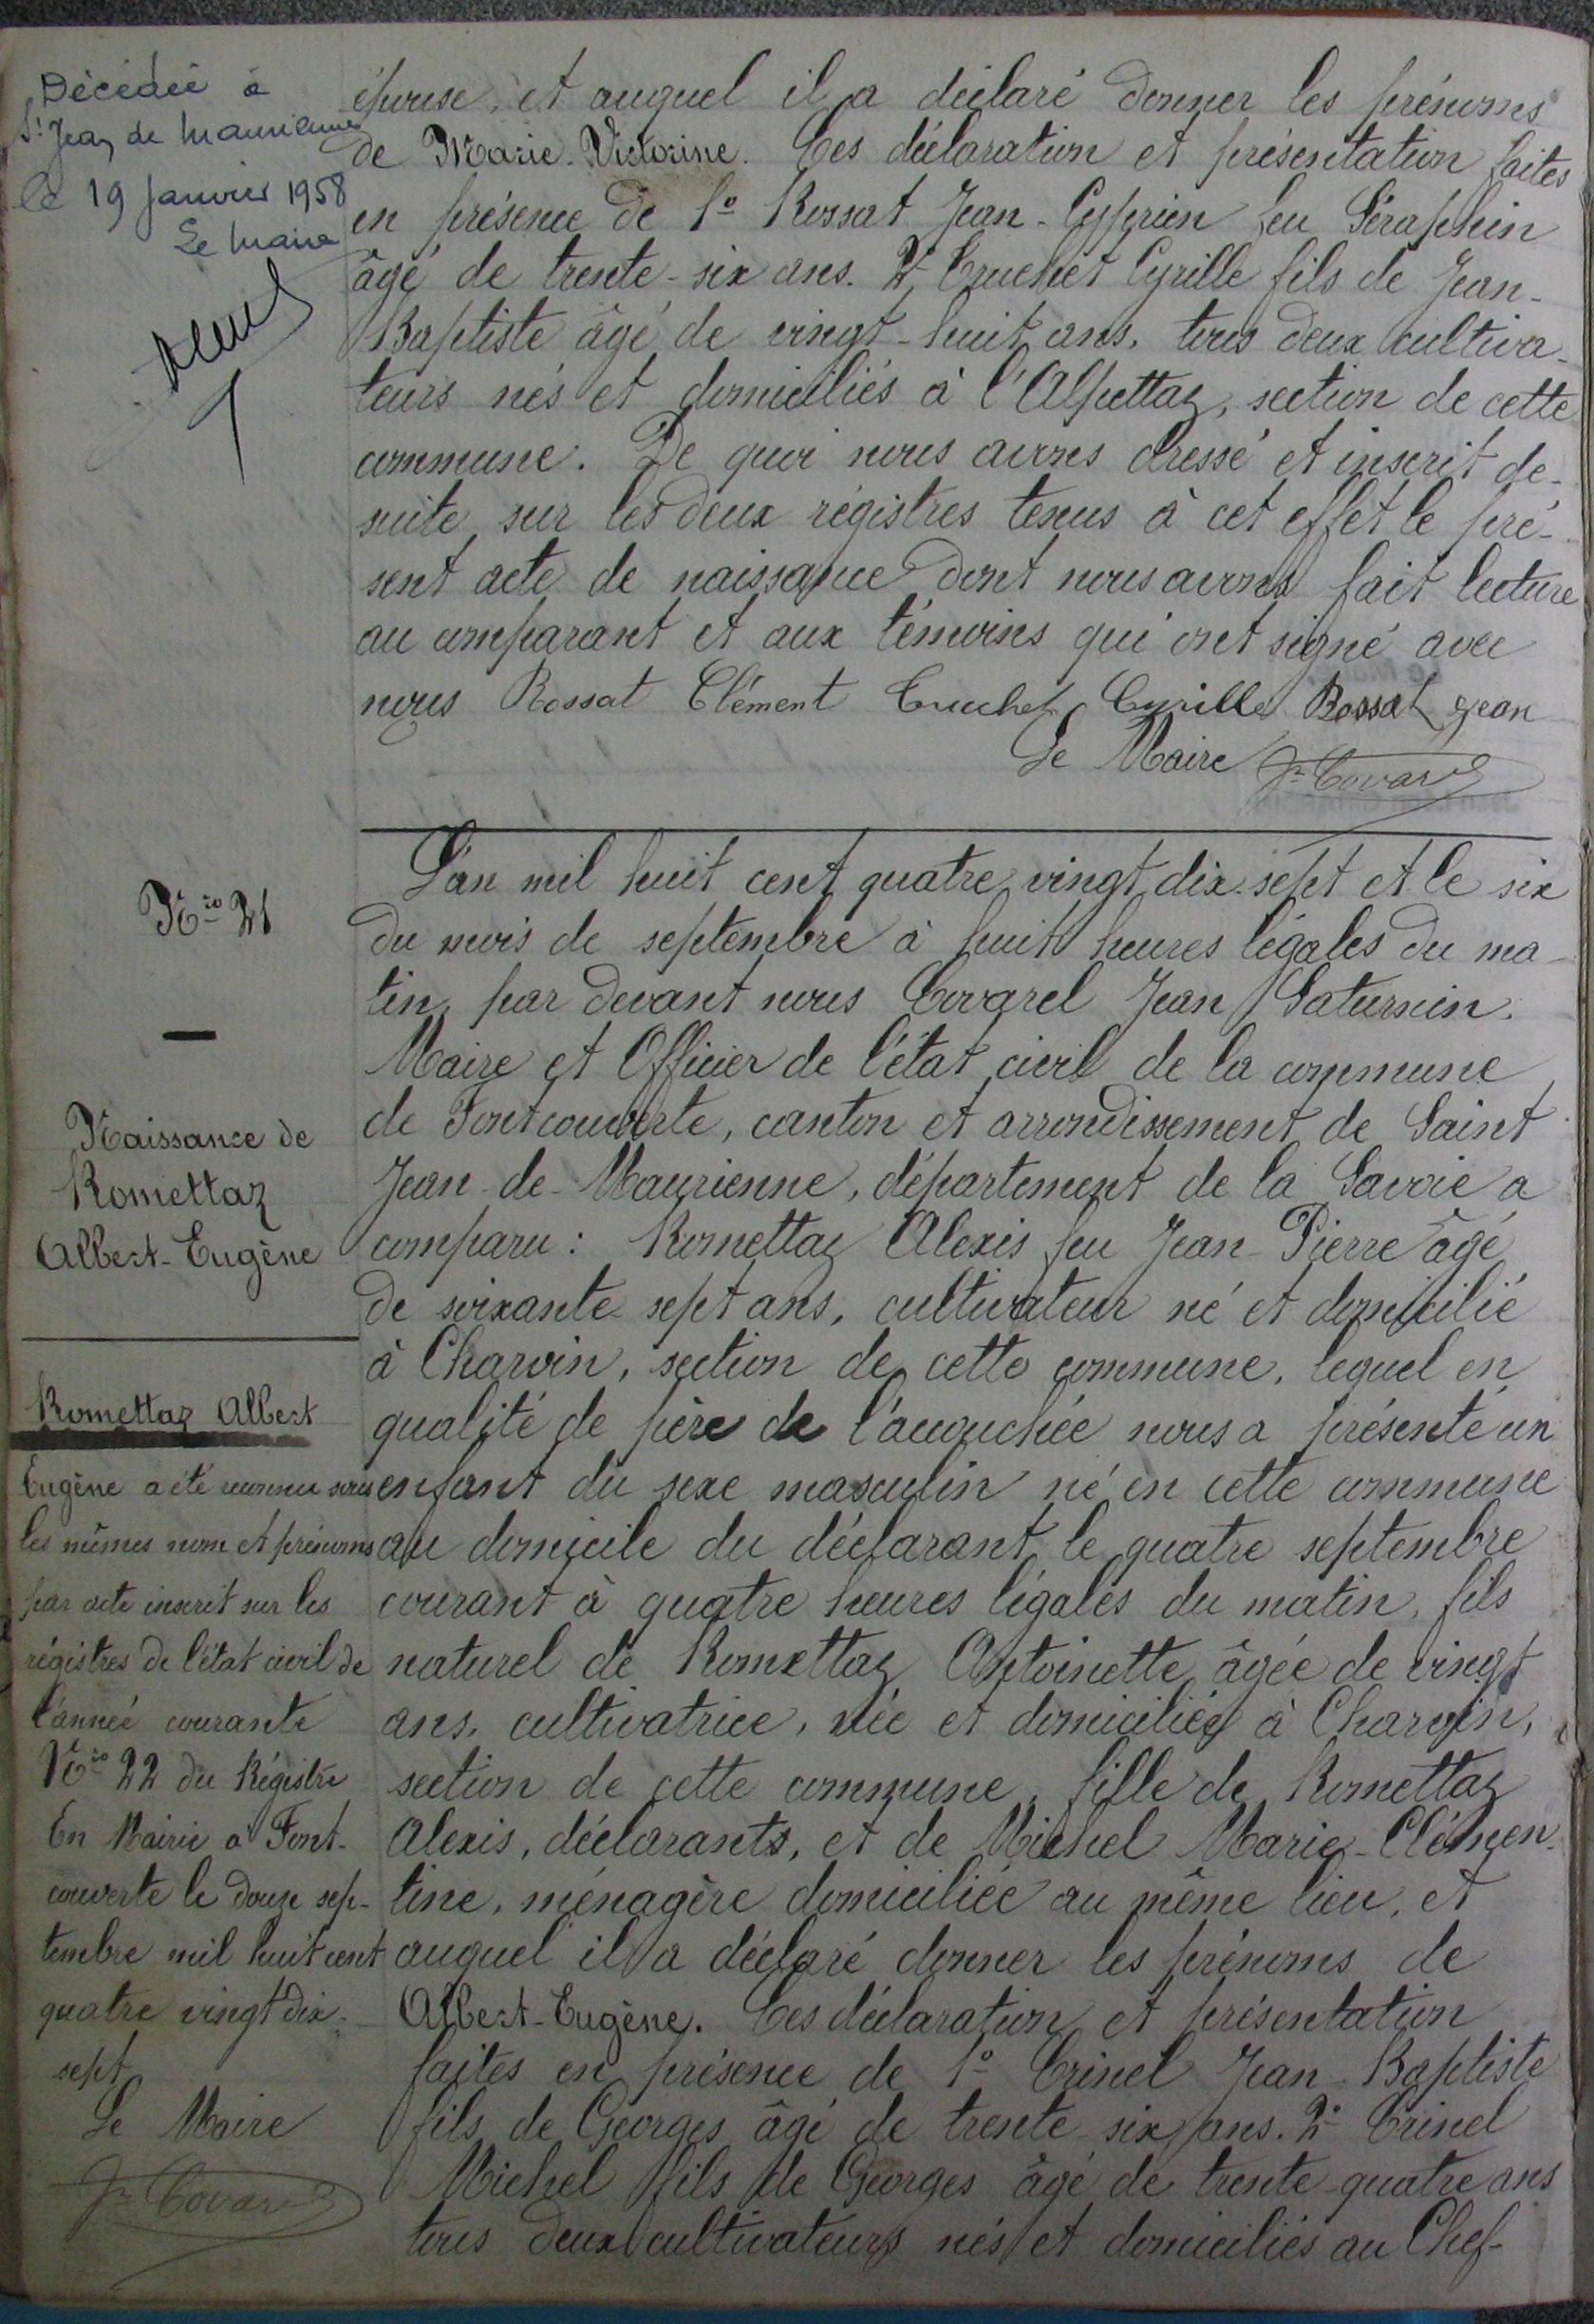 Décédée à
St Jean de Maurienne
le 19 Janvier 1958
Le Maire
épouse, et auquel il a déclaré donner les prénoms
de Marie-Victorine. Ces déclaration et présentation faites
en présence de 1o Rossat Jean-Cyprien feu Séraphin
âgé de trente-six ans. 2o Truchet Cyrille fils de Jean-
Baptiste âgé de vingt-huit ans, tous deux cultiva-
teurs nés et domiciliés à l'Alpettaz, section de cette
commune. De quoi nous avons dressé et inscrit de-
suite sur les deux régistres tenus à cet effet le pré-
sent acte de naissance dont nous avons fait lecture
au comparant et aux témoins qui ont signé avec
nous Rossat Clément Truchet Cyrille Rossat Jean
Le Maire Jn Covarel
Nro 21
Naissance de
Romettaz
Albert-Eugène
L'an mil huit cent quatre vingt dix-sept et le six
du mois de septembre à huit heures légales du ma-
tin, par devant nous Covarel Jean Saturnin.
Maire et Officier de l'état civil de la commune
de Fontcouverte, canton et arrondissement de Saint
Jean-de-Maurienne, département de la Savoie a
comparu : Romettaz Alexis feu Jean-Pierre âgé
de soixante-sept ans, cultivateur né et domicilié
à Charvin, section de cette commune, lequel en
qualité de père de l'accouchée nous a présenté un
enfant du sexe masculin né en cette commune
au domicile du déclarant le quatre septembre
courant à quatre heures légales du matin, fils
naturel de Romettaz Antoinette âgée de vingt
ans, cultivatrice, née et domiciliée à Charvin,
section de cette commune, fille de Romettaz
Alexis, déclarants, et de Michel Marie-Clémen-
tine, ménagère domiciliée au même lieu, et
auquel il a déclaré donner les prénoms de
Albert-Eugène. Ces déclaration et présentation
faites en présence de 1o Crinel Jean-Baptiste
fils de Georges âgé de trente-six ans. 2o Crinel
Michel fils de Georges âgé de trente-quatre ans
tous deux cultivateurs nés et domiciliés au Chef-
Romettaz Albert
Eugène a été reconnu sous
les mêmes nom et prénoms
par acte inscrit sur les
régistres de l'état civil de
l'année courante
Nro 22 du Régistre
En Mairie à Font-
couverte le douze sep-
tembre mil huit cent
quatre vingt dix-
sept
Le Maire
Jn Covarel